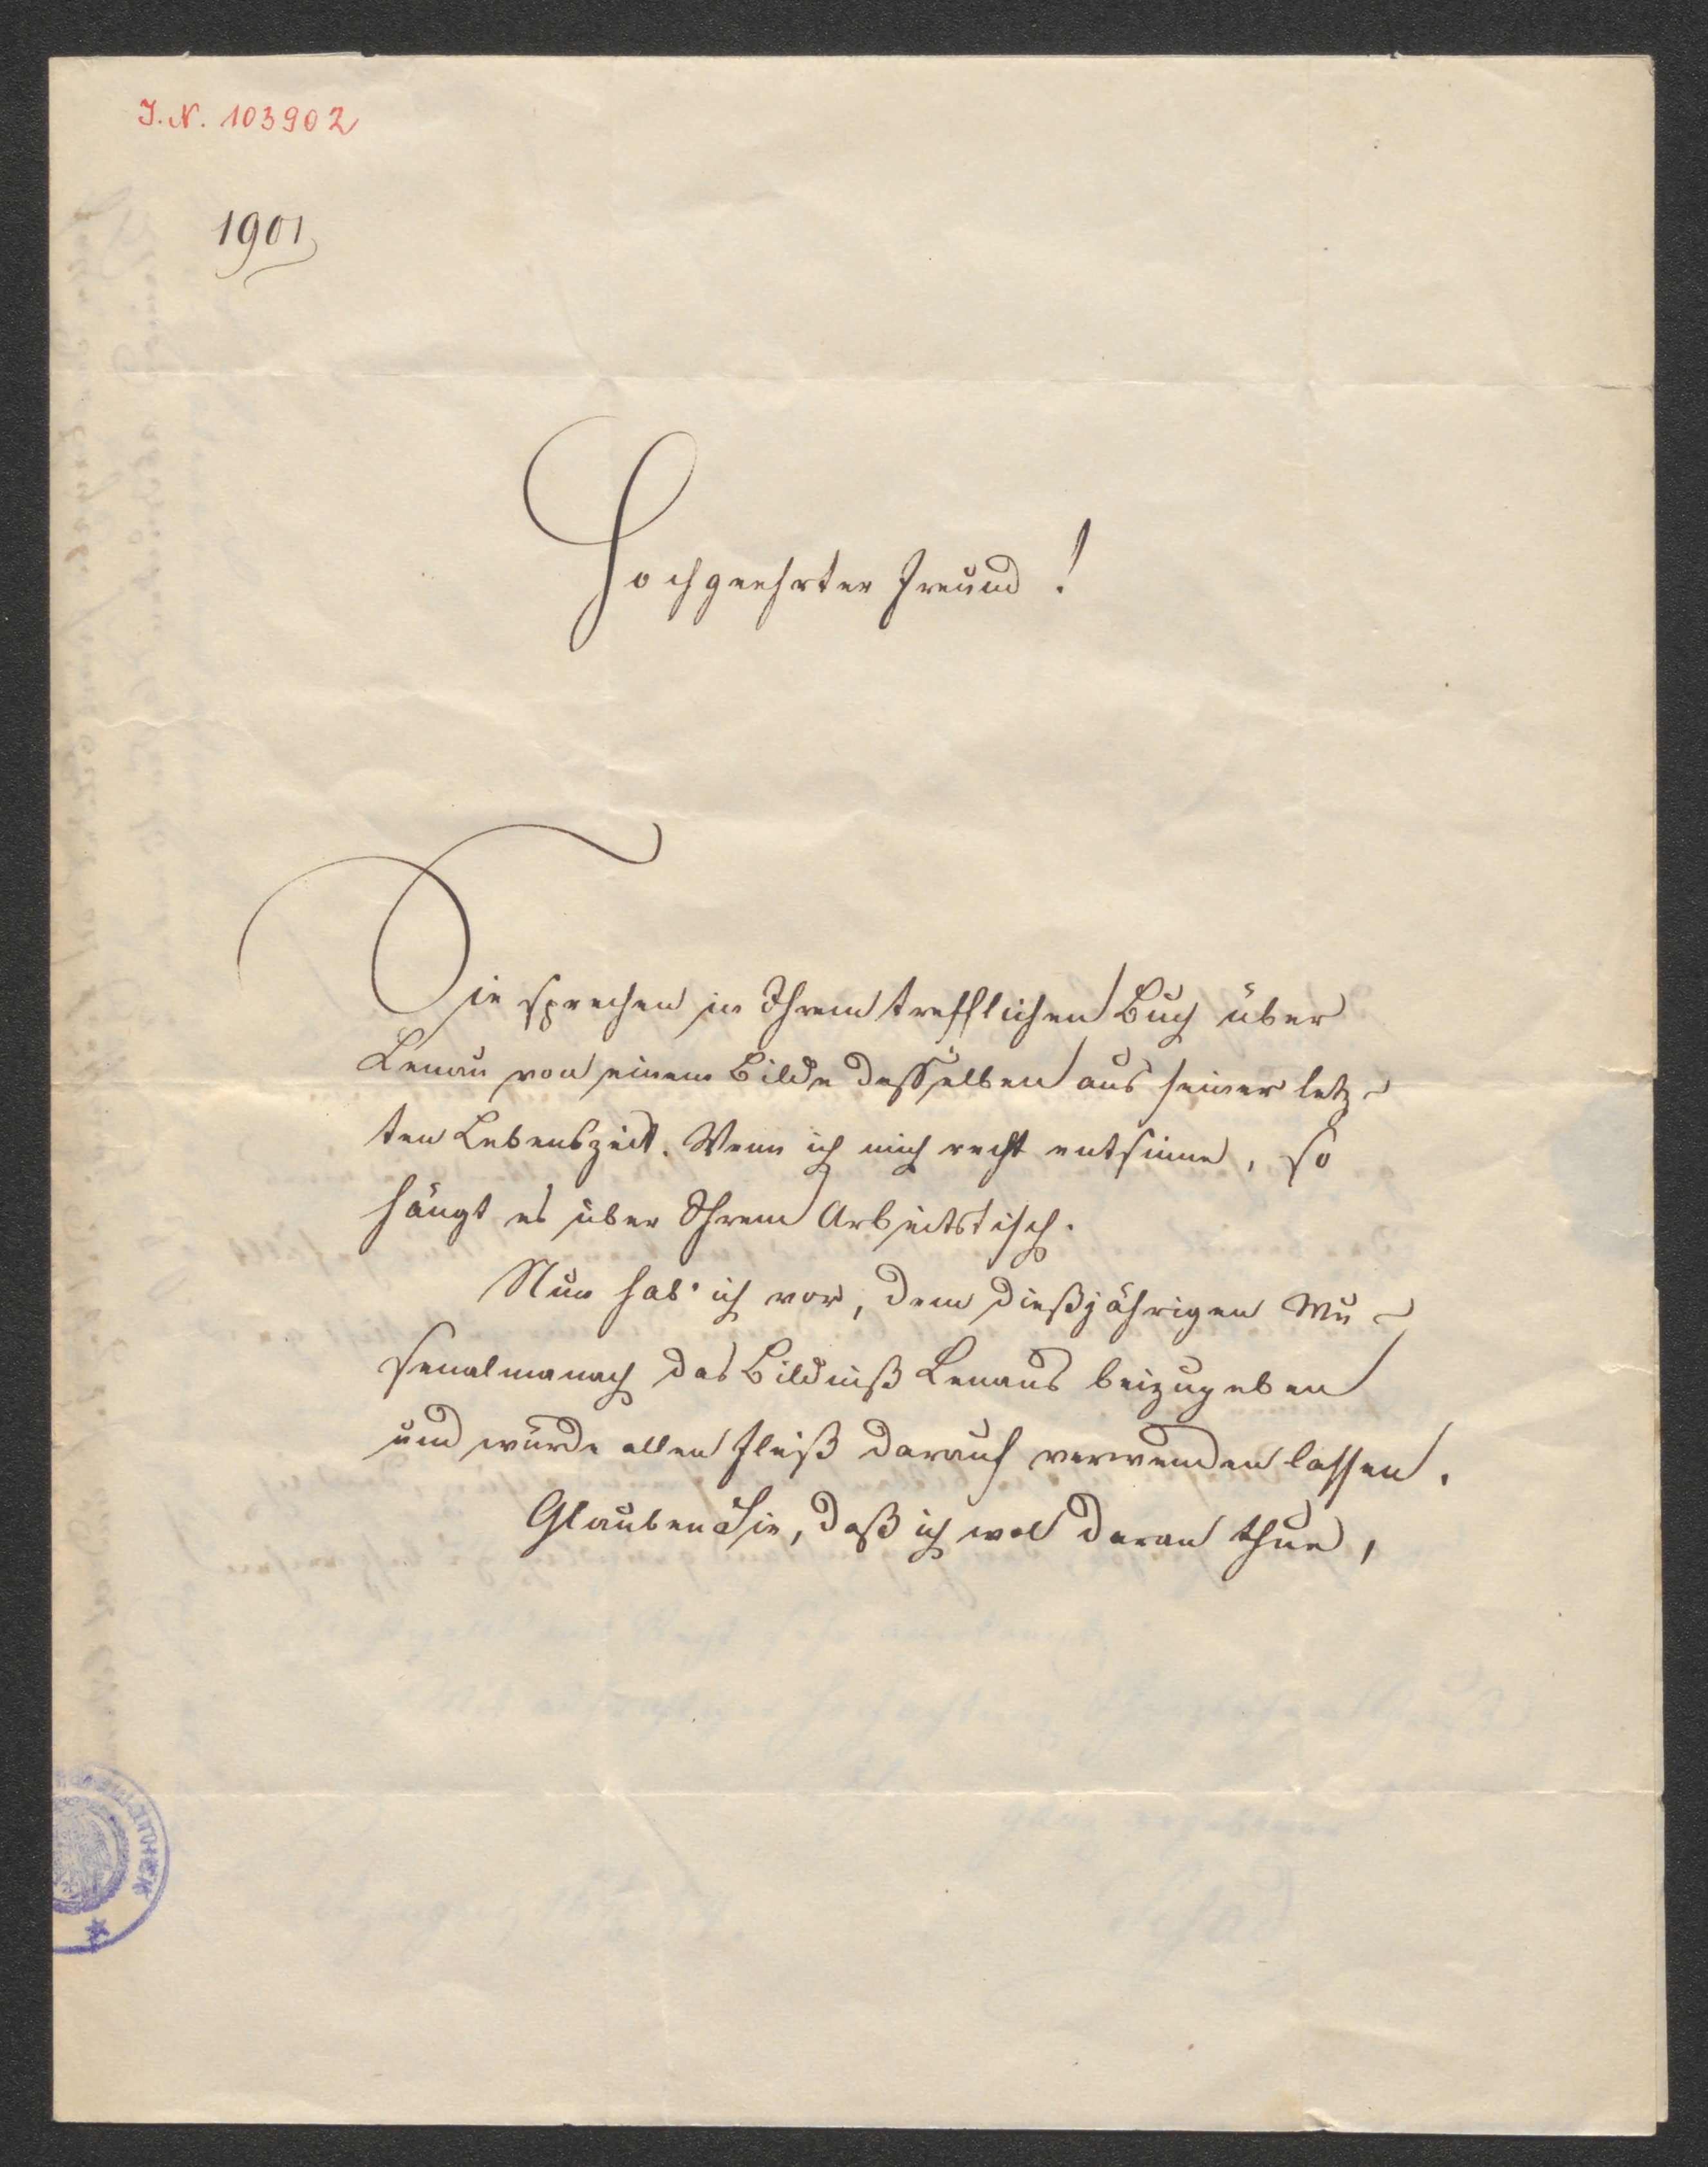 I. N. 103902
1901
Hochgeehrter Freund!
Sie sprechen in Ihrem trefflichen Buch über
Lenau von einem Bilde desselben aus seiner letz-
ten Lebenszeit. Wenn ich mich recht entsinne, so
hängt es über Ihrem Arbeitstisch.
Nun hab' ich vor, dem dießjährigen Mu-
senalmanach das Bildniß Lenaus beizugeben
und würde allen Fleiß darauf verwenden lassen.
Glauben Sie, daß ich wol daran thue,